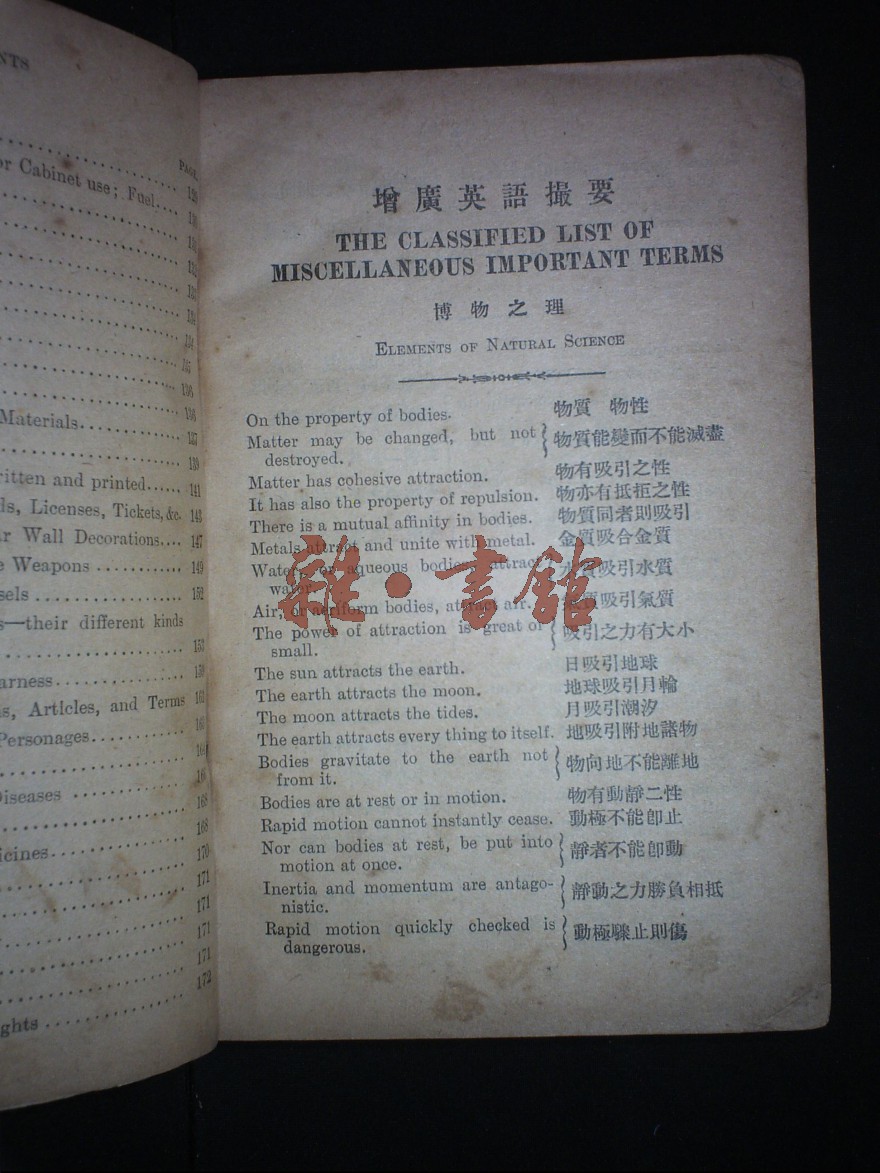 NTS
PAGE
or Cabinet use; Fuel.... 129
130
131
132
133
134
134
135
136
136
Materials........ 137
139
written and printed...... 141
ds, Licenses, Tickets, &c. 143
r Wall Decorations.... 147
e Weapons ........... 149
sels ................. 152
s—their different kinds
153
arness............... 159
s, Articles, and Terms 161
Personages........... 163
164
Diseases ............ 168
168
icines............... 170
171
171
171
171
172
ghts ................
增廣英語撮要
THE CLASSIFIED LIST OF
MISCELLANEOUS IMPORTANT TERMS
博物之理
ELEMENTS OF NATURAL SCIENCE
On the property of bodies. 物質 物性
Matter may be changed, but not 物質能變而不能滅盡
destroyed.
Matter has cohesive attraction. 物有吸引之性
It has also the property of repulsion. 物亦有抵拒之性
There is a mutual affinity in bodies. 物質同者則吸引
Metals attract and unite with metal. 金質吸合金質
Water, or aqueous bodies, attract 水質吸引水質
water.
Air, or aeriform bodies, attract air. 氣質吸引氣質
The power of attraction is great or 吸引之力有大小
small.
The sun attracts the earth. 日吸引地球
The earth attracts the moon. 地球吸引月輪
The moon attracts the tides. 月吸引潮汐
The earth attracts every thing to itself. 地吸引附地諸物
Bodies gravitate to the earth not 物向地不能離地
from it.
Bodies are at rest or in motion. 物有動靜二性
Rapid motion cannot instantly cease. 動極不能卽止
Nor can bodies at rest, be put into 靜者不能卽動
motion at once.
Inertia and momentum are antago- 靜動之力勝負相抵
nistic.
Rapid motion quickly checked is 動極驟止則傷
dangerous.
雜·書館